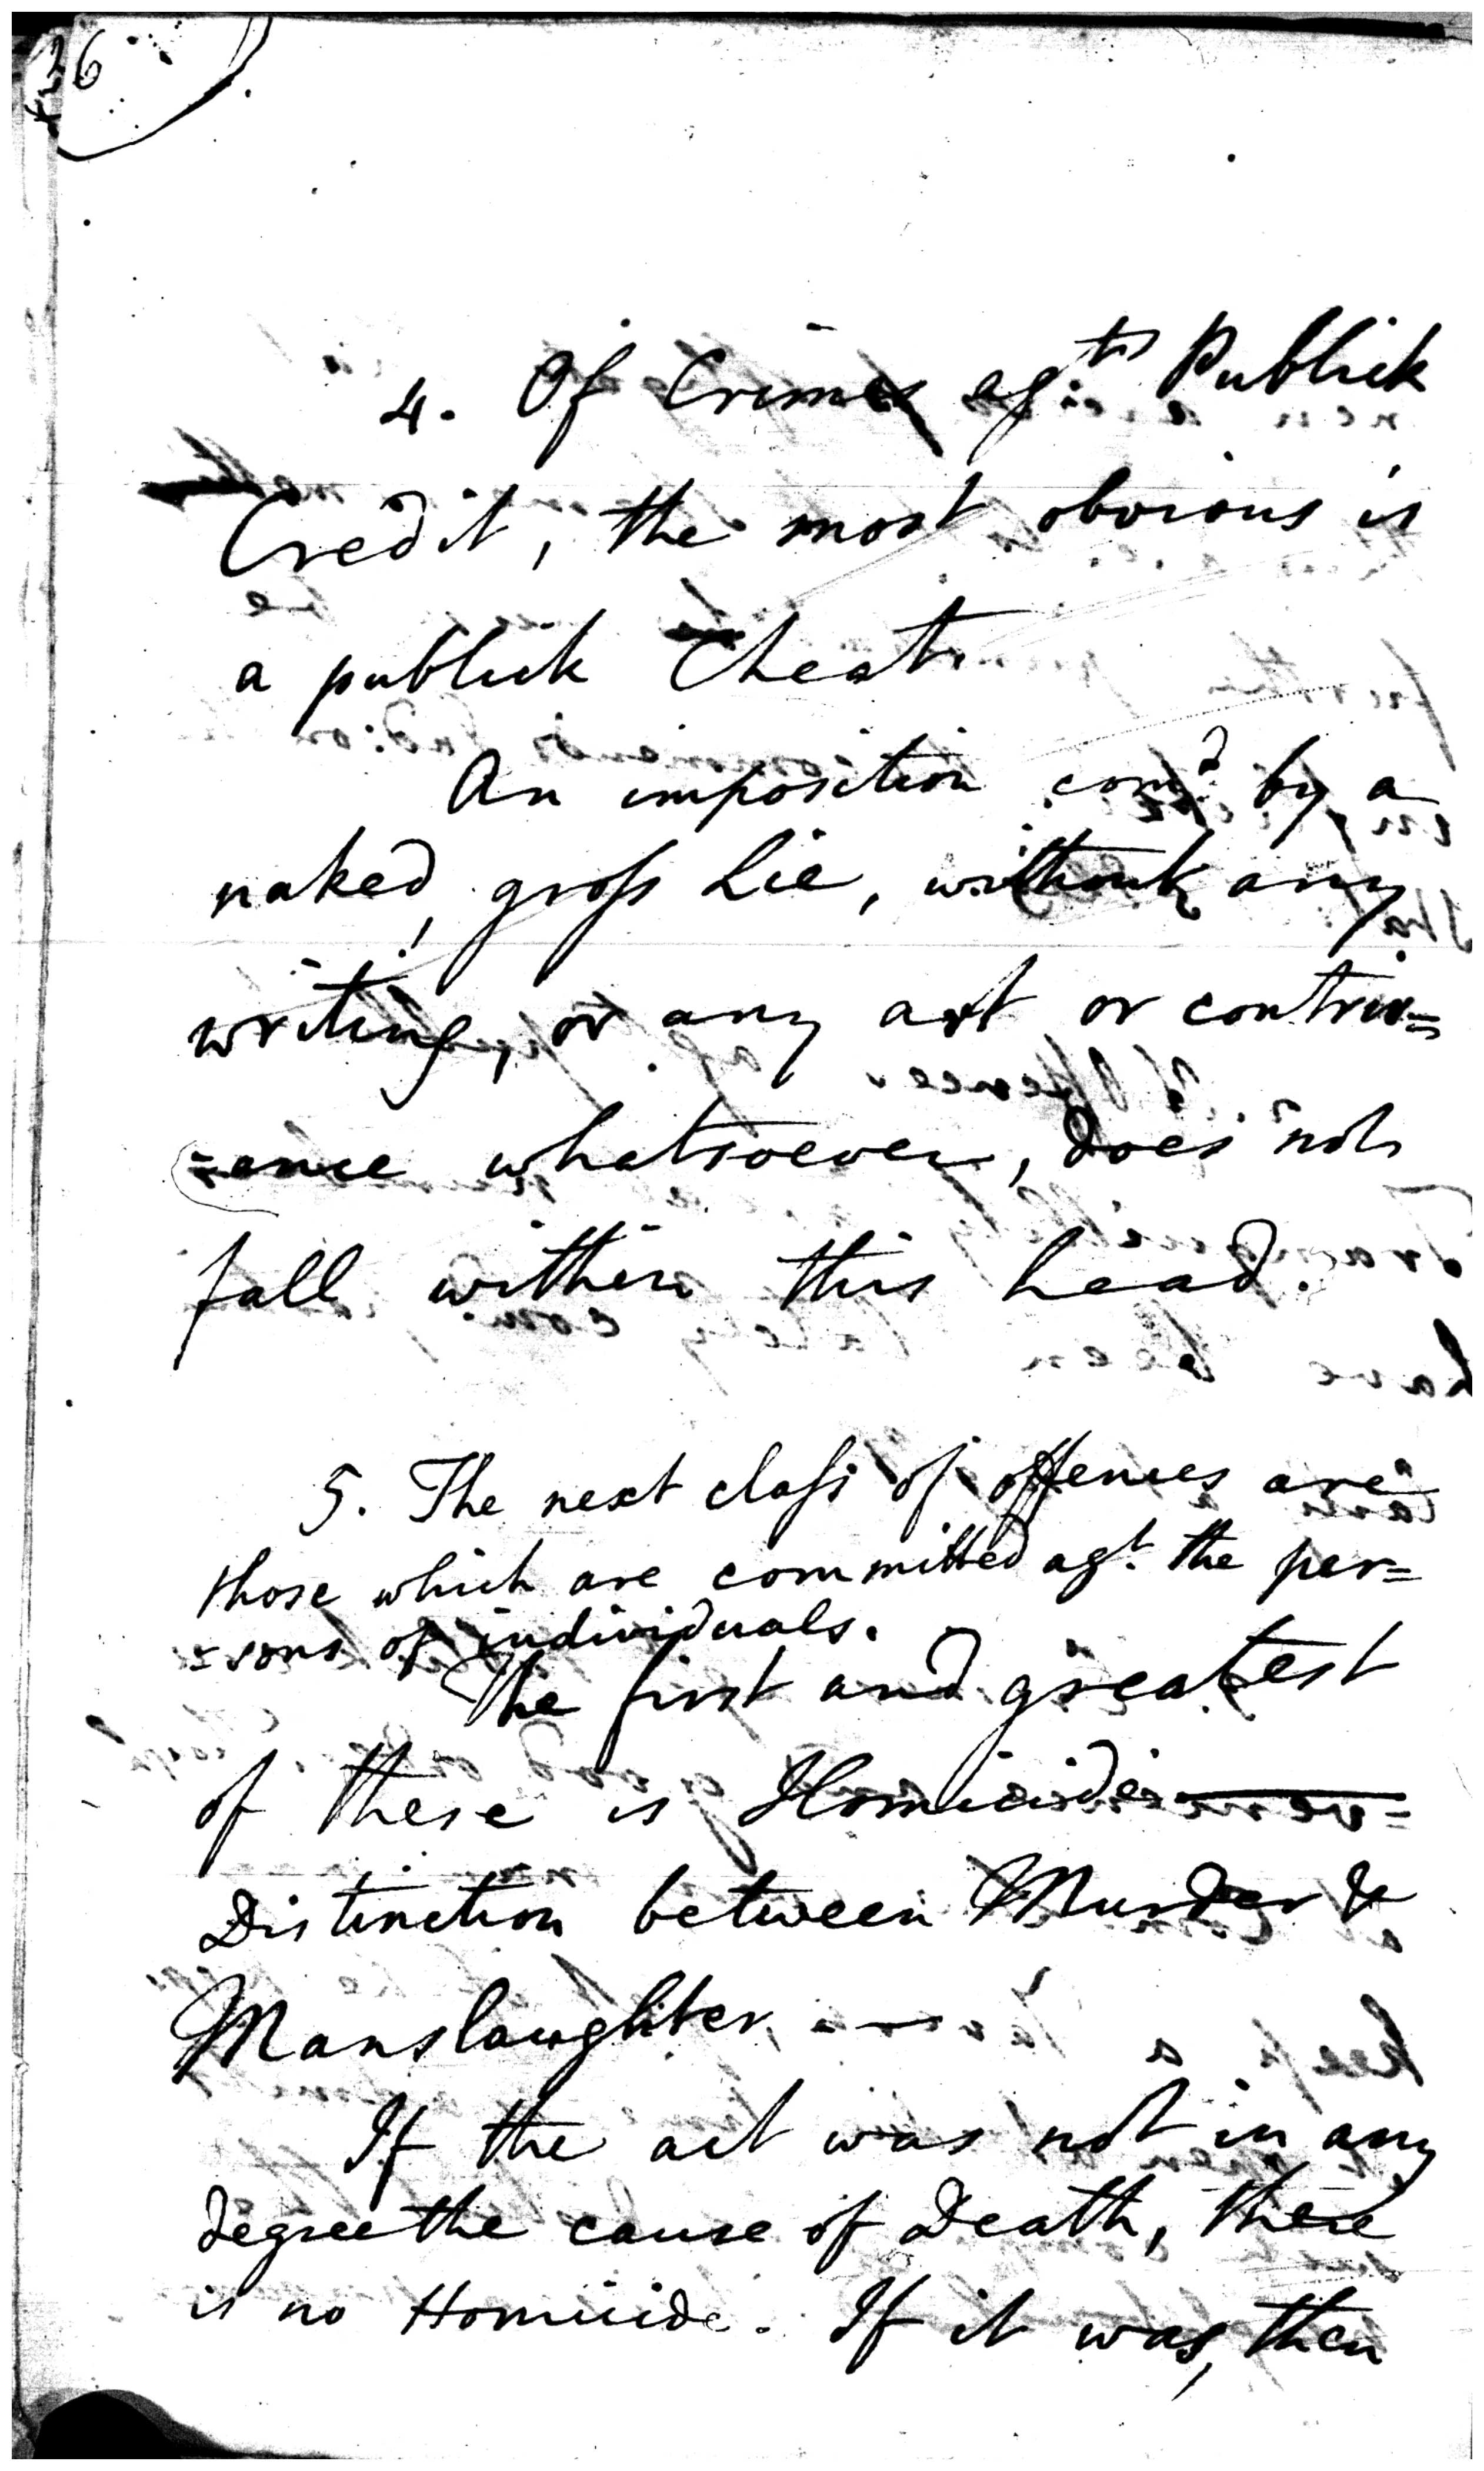 36
4. Of Crimes agt Publick
Credit, the most obvious is
a publick Cheat.
An imposition comd by a
naked, gross Lie, without any
writing, or any art or contriv=
=ance whatsoever, does not
fall within this head.
5. The next class of offences are
those which are committed agt. the per=
=sons of individuals.
The first and greatest
of these is Homicide
Distinction between Murder &
Manslaughter.
If the act was not in any
degree the cause of Death, there
is no Homicide. If it was, then